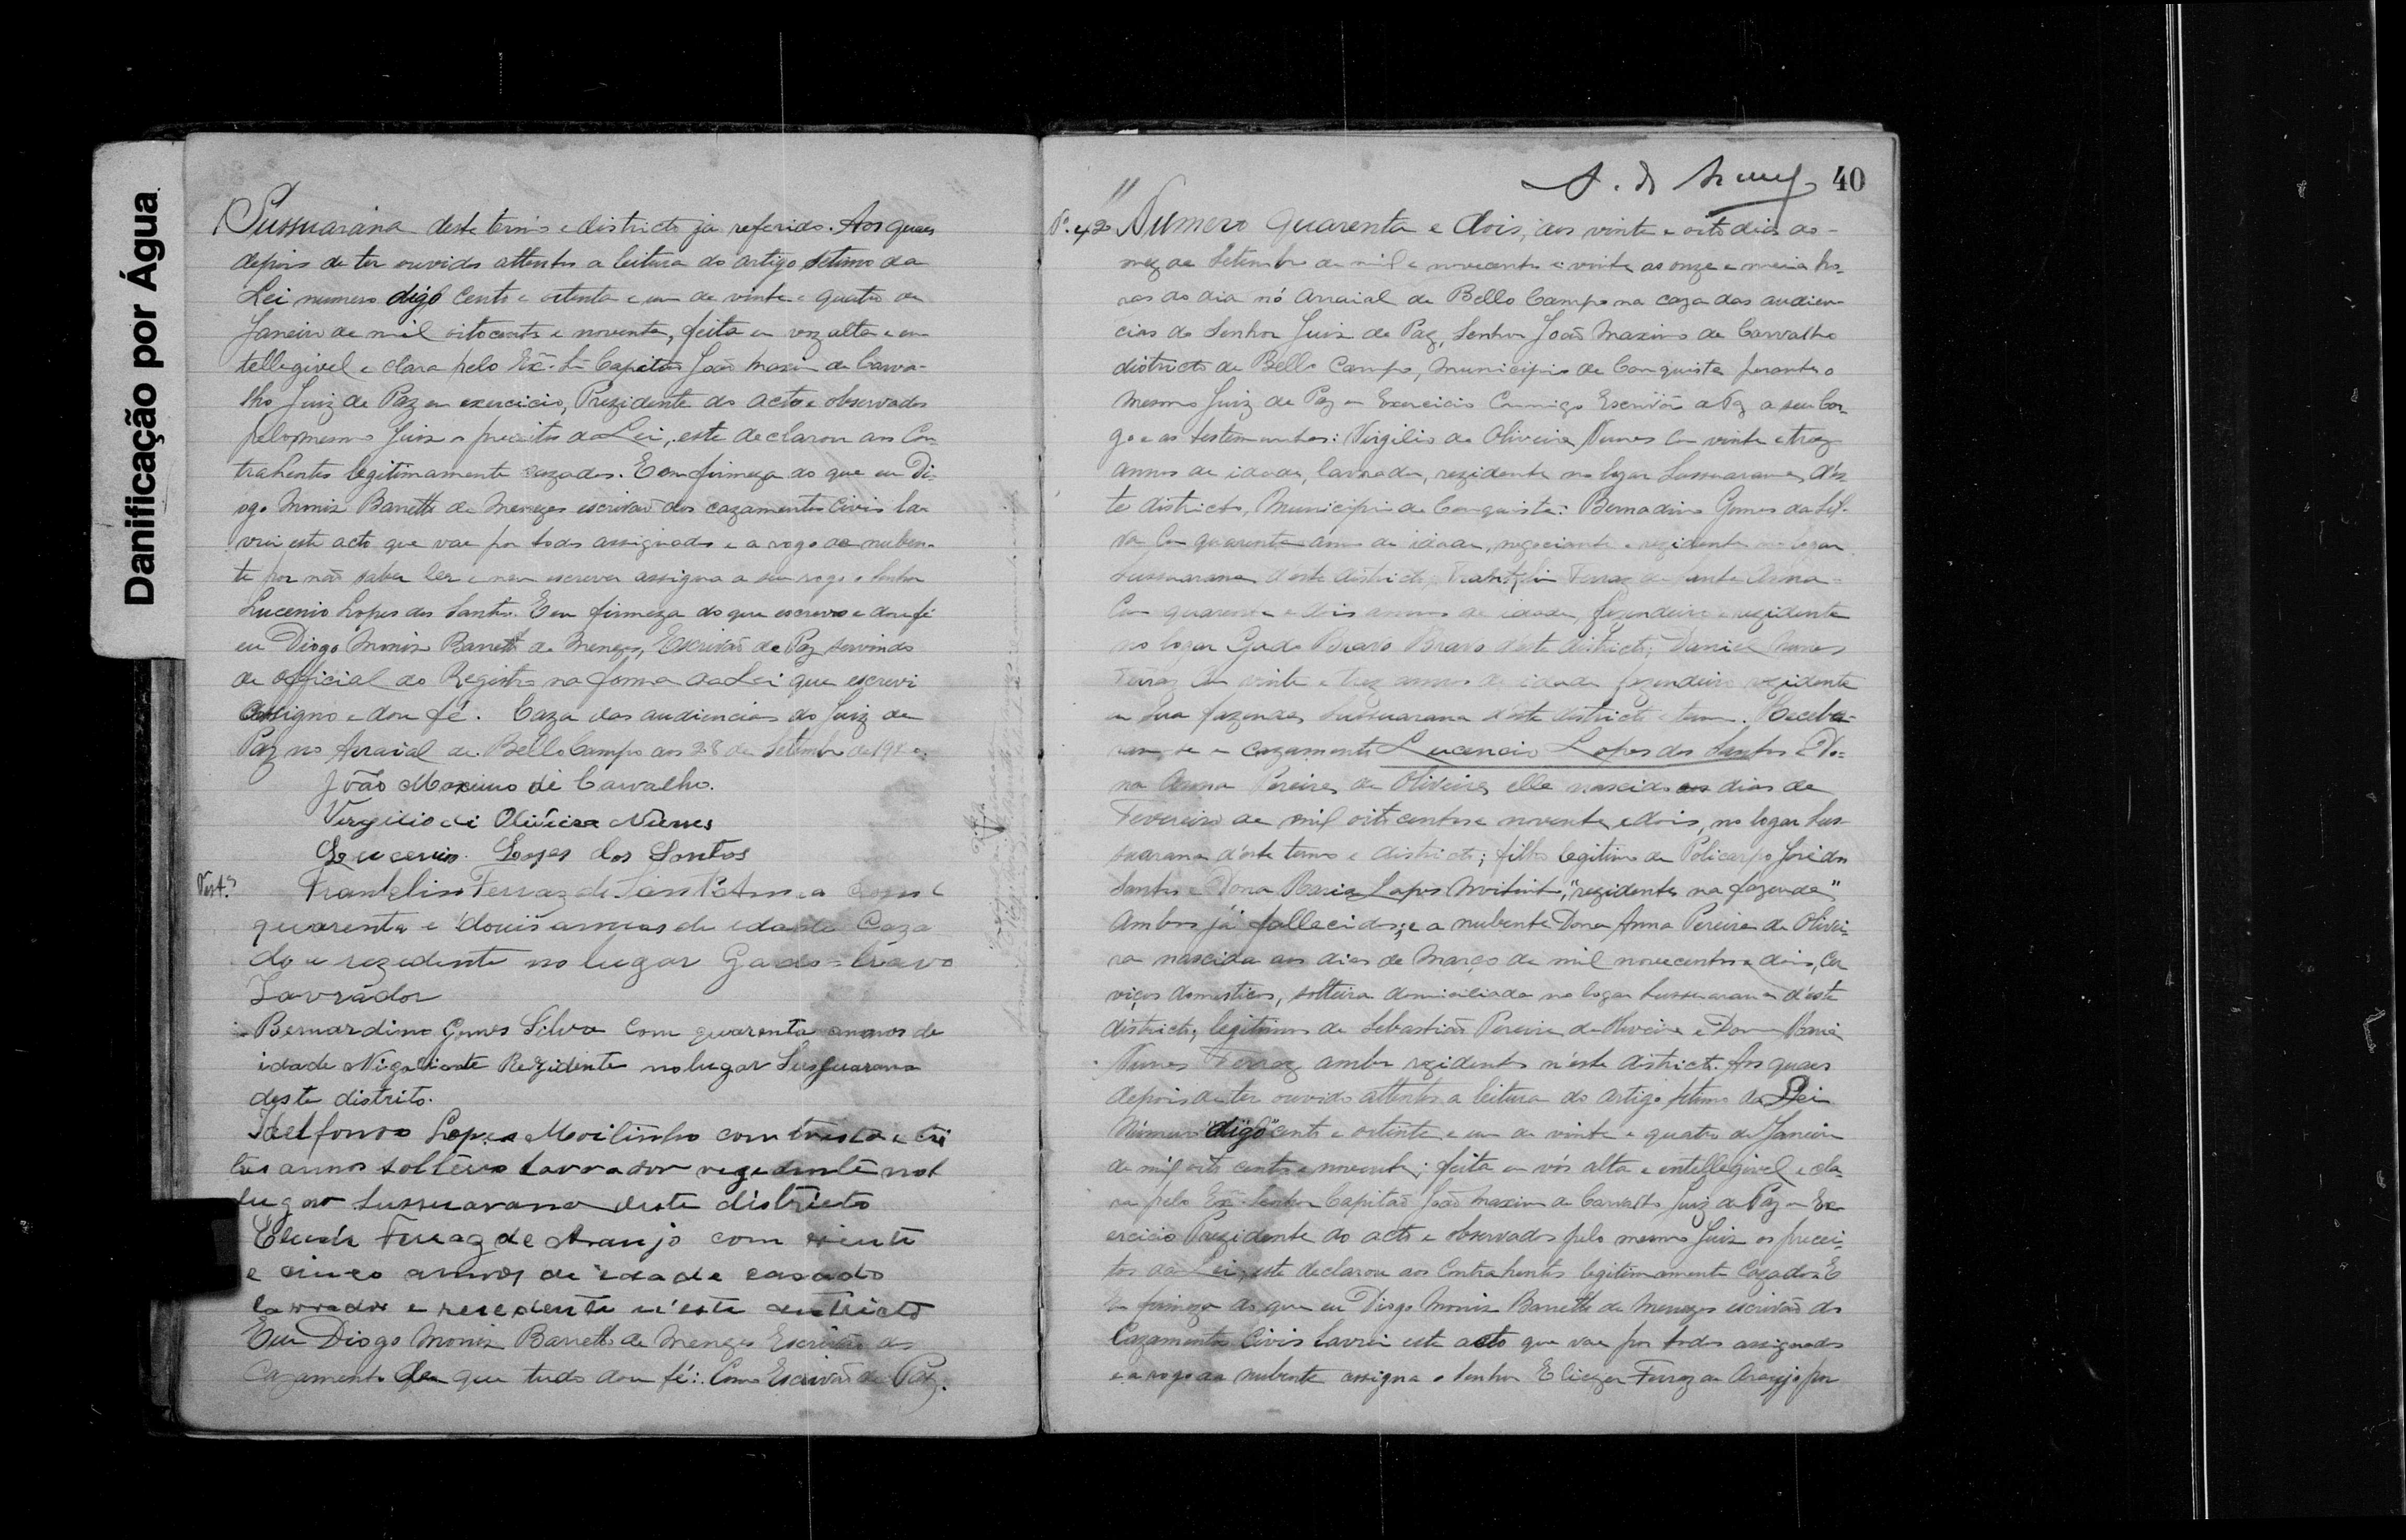 Danificação por Água
Sussuarana deste termo e districto já referido. Aos quaes
depois de ter ouvidos attentos a leitura do artigo setimo da
Lei numero digo cento e oitenta e um de vinte e quatro de
Janeiro de mil oitocentos e noventa, feita em voz alta e en-
tellegivel e clara pelo Exº Sr Capitão João Maximo de Carva-
lho Juiz de Paz em exercicio, Prezidente do acto e observados
pelo mesmo Juiz os preceitos da Lei, este declarou aos Con-
trahentes legitimamente cazados. E em firmeza do que eu Di-
ogo Moniz Barretto de Menezes escrivão dos cazamentos Civis la-
vrei este acto que vae por todos assignados e a rogo da nuben-
te por não saber ler e nem escrever assigna a seu rogo o Senhor
Lucenio Lopes dos Santos. E em firmeza do que escrevo e dou fé
eu Diogo Moniz Barretto de Menezes, Escrivão de Paz servindo
de official do Registro na forma da Lei que escrevi
assigno e dou fé. Caza das audiencias do Juiz de
Paz no Arraial de Bello Campo aos 28 de Setembro de 1920.
João Maximo de Carvalho.
Virgilio di Oliveira Nunes
Lucenio Lopes dos Santos
Test.as
Franklin Ferraz de Santa Anna com
quarenta e douis annos de idade Caza
do e rezedente no lugar Gado=bravo
Lavrador
Bernardino Gomes Silva Com quarenta annos de
idade Nigoliante Rezidente no lugar Sussuarana
deste distrito.
Idelfonso Lopes Moitinho com trinta e tri
tes annos solteiro lavrador regedente no
lugar Sussuarana deste districto
Ferraz de Araujo com vinte
e cinco annos de idade casado
lavrador e resedente n'este destricto
Eu Diogo Moniz Barretto de Menezes Escrivão dos
Cazamentos de que tudo dou fé: Como Escrivão de Paz.
40
Nº 42 Numero quarenta e dois, aos vinte e oito dias do
mez de Setembro de mil e novecentos e vinte as onze e meia ho-
ras do dia nó Arraial de Bello Campo na caza das audien-
cias do Senhor Juiz de Paz, Senhor João Maximo de Carvalho
districto de Bello Campo, Municipio de Conquista perante o
mesmo Juiz de Paz em Exercicio Commigo Escrivão de Paz a seu Car-
go e as testemunhas: Virgilio de Oliveira Nunes Com vinte e trez
annos de idade, lavrador, rezidente no logar Sussuarana, d'es-
te districto, Municipio de Conquista: Bernadino Gomes da Sil-
va Com quarenta annos de idade, negociante e rezidente no logar
Sussuarana d'este districto, Franklin Ferraz de Santa Anna
Com quarenta e dois annos de idade, fazendeiro e rezidente
no logar Gado Bravo Bravo d'este districto; Daniel Nunes
Ferraz Com vinte e trez annos de idade fazendeiro rezidente
em sua fazenda Sussuarana d'este districto e termo. Recebe-
ram-se em cazamento Lucencio Lopes dos Santos e Do-
na Anna Pereira de Oliveira, elle nascido aos dias de
Fevereiro de mil oito centos e noventa e dois, no logar Sus-
suarana d'este termo e districto; filho legitimo de Policarpo José dos
Santos e Dona Maria Lopes Moitinho, "rezidentes na fazenda"
Ambos já fallecidos; e a nubente Dona Anna Pereira de Olivei-
ra nascida aos dias de Março de mil novecentos e dois, Cer
viços domesticos, solteira domiciliada no logar Sussuarana d'este
districto, legitima de Sebastião Pereira de Oliveira e Dona Maria
Nunes Ferraz ambos rezidentes n'este districto. Aos quaes
depois de ter ouvido attentos a leitura do artigo setimo da Lei
Numero "digo" cento e oitenta e um de vinte e quatro de Janeiro
de mil oito centos e noventa; feita em vós alta e entellegivel e cla-
ra pelo Exº Senhor Capitão João Maximo de Carvalho Juiz de Paz em Ex-
ercicio Prezidente do acto e observados pelo mesmo Juiz os precei-
tos da Lei, este declarou aos Contrahentes legitimamente Cazados. E
em firmeza do que eu Diogo Moniz Barretto de Menezes escrivão dos
Cazamentos Civis lavrei este acto que vae por todos assignados
e a rogo da nubente assigna o Senhor Eliezer Ferraz de Araujo por